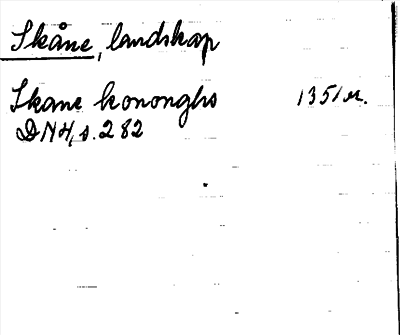 Skåne, landskap
Skane kononghs 1351 or.
DN 4, s. 282